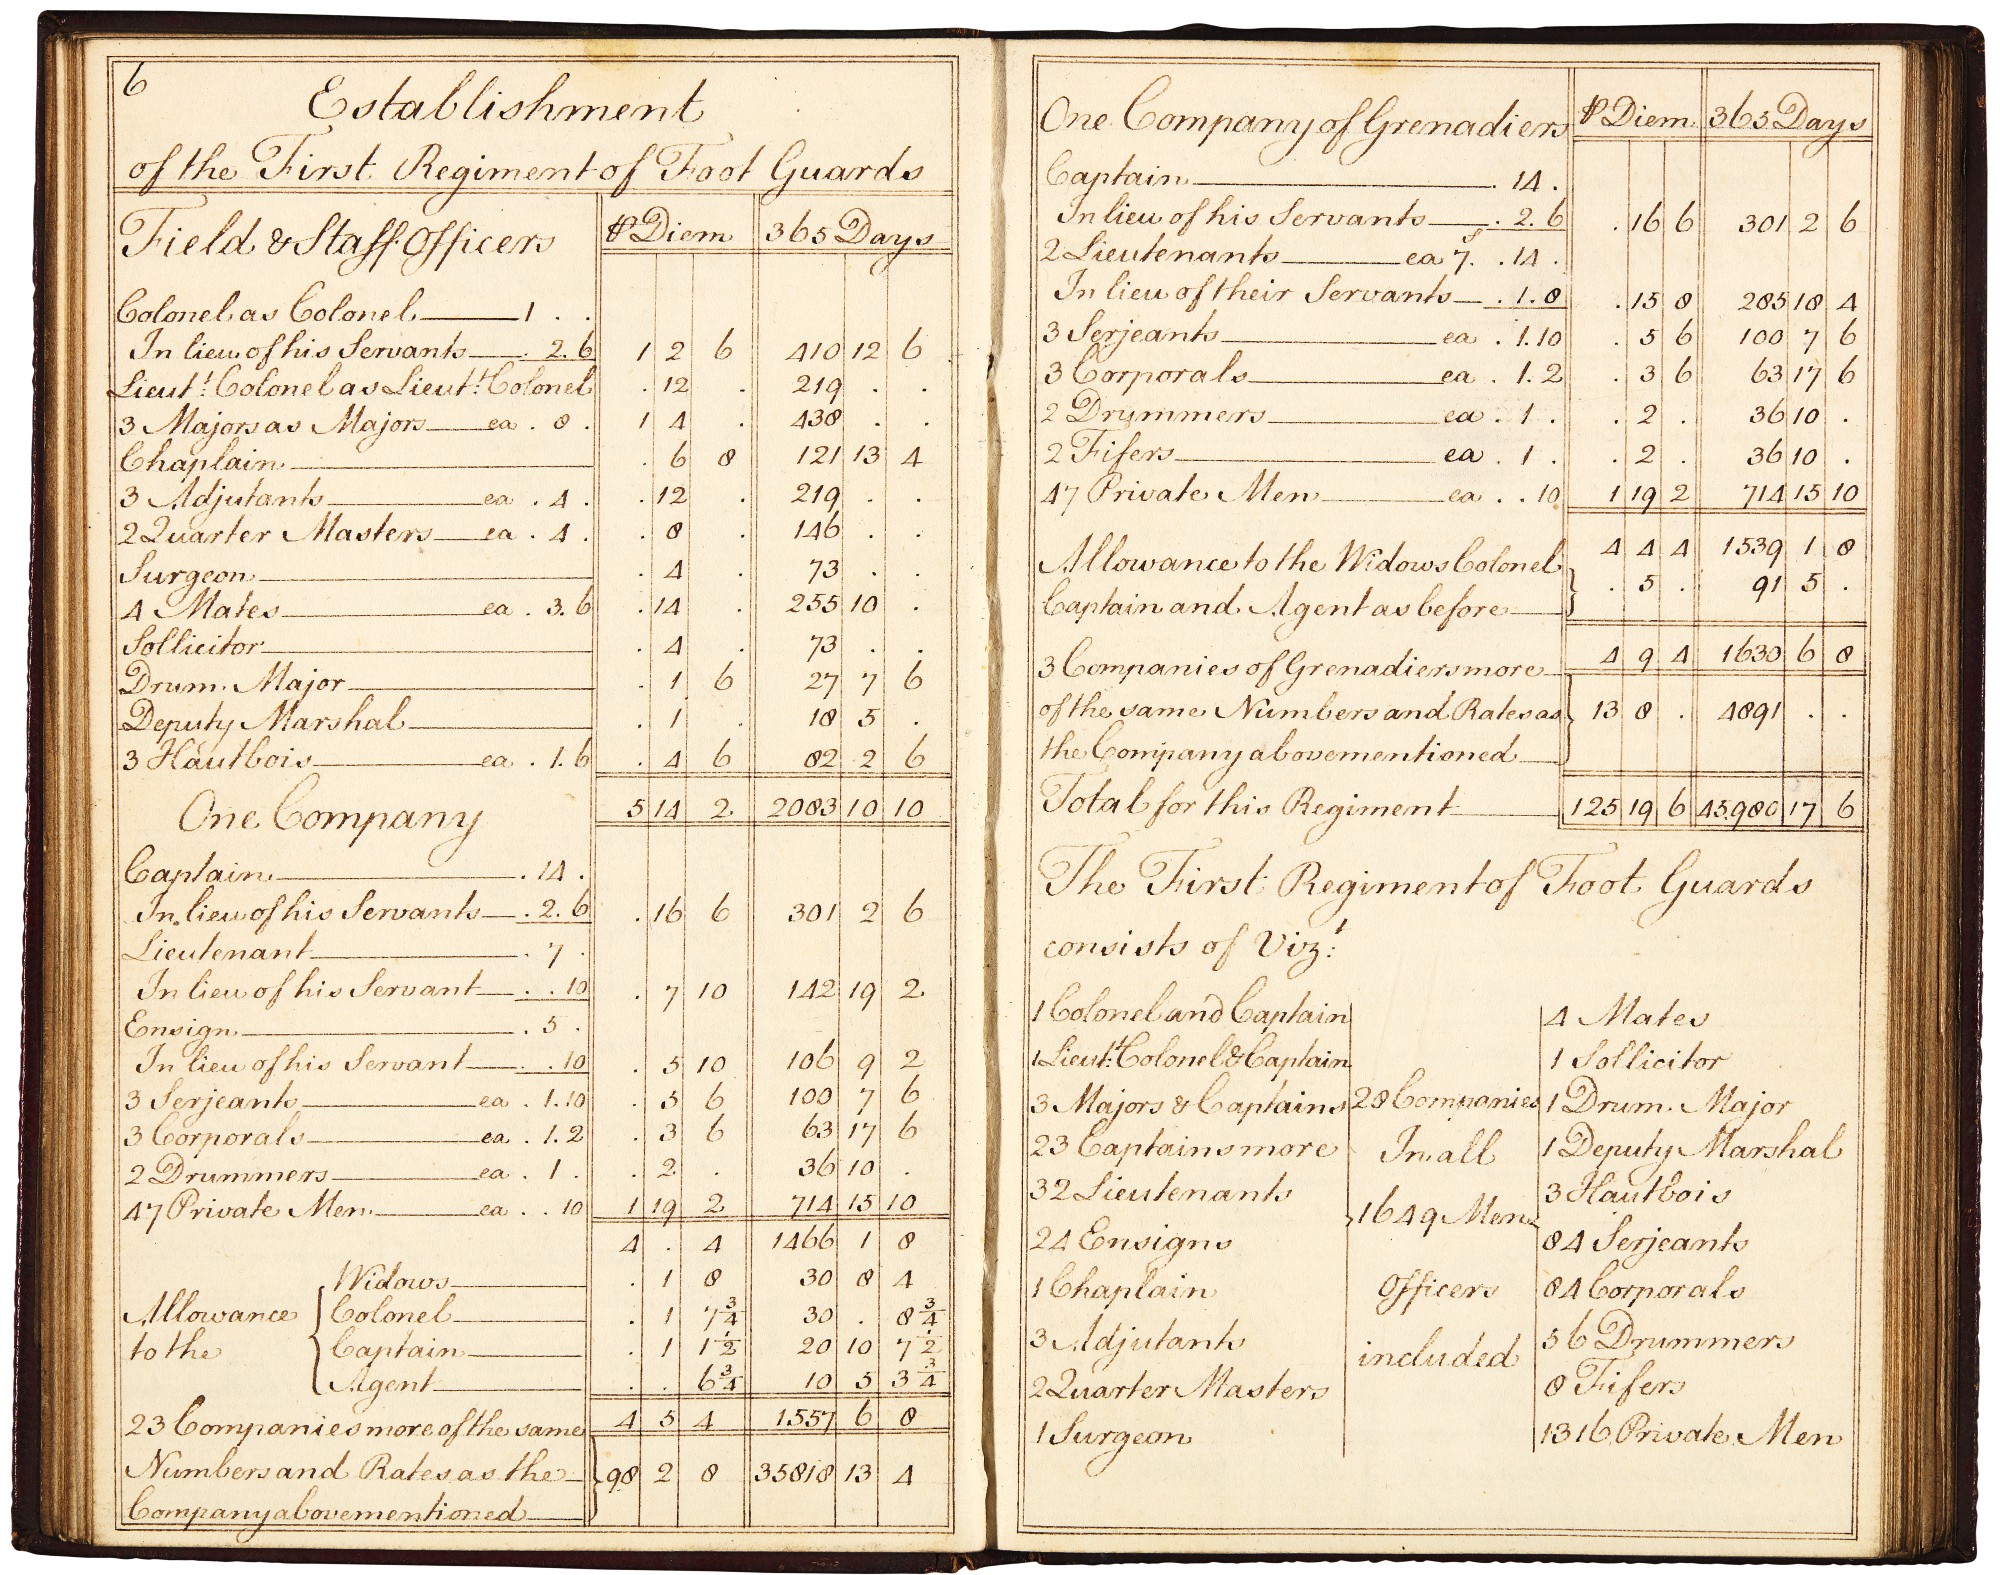 6
Establishment
of the First Regiment of Foot Guards
Field & Staff Officers ⅌ Diem 365 Days
Colonel as Colonel 1 . .
In lieu of his Servants . 2. 6 1 2 6 410 12 6
Lieut.t Colonel as Lieut.t Colonel . 12 . 219 . .
3 Majors as Majors ea . 8 . 1 4 . 438 . .
Chaplain . 6 8 121 13 4
3 Adjutants ea . 4 . . 12 . 219 . .
2 Quarter Masters ea . 4 . . 8 . 146 . .
Surgeon . 4 . 73 . .
4 Mates ea . 3. 6 . 14 . 255 10 .
Sollicitor . 4 . 73 . .
Drum. Major . 1 6 27 7 6
Deputy Marshal . 1 . 18 5 .
3 Hautbois ea . 1. 6 . 4 6 82 2 6
One Company 5 14 2 2083 10 10
Captain . 14 .
In lieu of his Servants . 2. 6 . 16 6 301 2 6
Lieutenant . 7 .
In lieu of his Servant . . 10 . 7 10 142 19 2
Ensign . 5 .
In lieu of his Servant . . 10 . 5 10 106 9 2
3 Serjeants ea . 1. 10 . 5 6 100 7 6
3 Corporals ea . 1. 2 . 3 6 63 17 6
2 Drummers ea . 1 . . 2 . 36 10 .
47 Private Men ea . . 10 1 19 2 714 15 10
4 . 4 1466 1 8
Allowance to the
Widows . 1 8 30 8 4
Colonel . 1 7¾ 30 . 8¾
Captain . 1 1½ 20 10 7½
Agent . . 6¾ 10 5 3¾
23 Companies more of the same 4 5 4 1557 6 8
Numbers and Rates as the 98 2 8 35818 13 4
Company abovementioned
One Company of Grenadiers ⅌ Diem 365 Days
Captain . 14 .
In lieu of his Servants . 2. 6 . 16 6 301 2 6
2 Lieutenants ea 7s. . 14 .
In lieu of their Servants . 1. 8 . 15 8 285 18 4
3 Serjeants ea . 1. 10 . 5 6 100 7 6
3 Corporals ea . 1. 2 . 3 6 63 17 6
2 Drummers ea . 1 . . 2 . 36 10 .
2 Fifers ea . 1 . . 2 . 36 10 .
47 Private Men ea . . 10 1 19 2 714 15 10
4 4 4 1539 1 8
Allowance to the Widows Colonel
Captain and Agent as before . 5 . 91 5 .
4 9 4 1630 6 8
3 Companies of Grenadiers more
of the same Numbers and Rates as 13 8 . 4891 . .
the Company abovementioned
Total for this Regiment 125 19 6 45.980 17 6
The First Regiment of Foot Guards
consists of Viz.t
1 Colonel and Captain
1 Lieut.t Colonel & Captain
3 Majors & Captains
23 Captains more
32 Lieutenants
24 Ensigns
1 Chaplain
3 Adjutants
2 Quarter Masters
1 Surgeon
28 Companies
In all
1649 Men
Officers
included
4 Mates
1 Sollicitor
1 Drum. Major
1 Deputy Marshal
3 Hautbois
84 Serjeants
84 Corporals
56 Drummers
8 Fifers
1316 Private Men